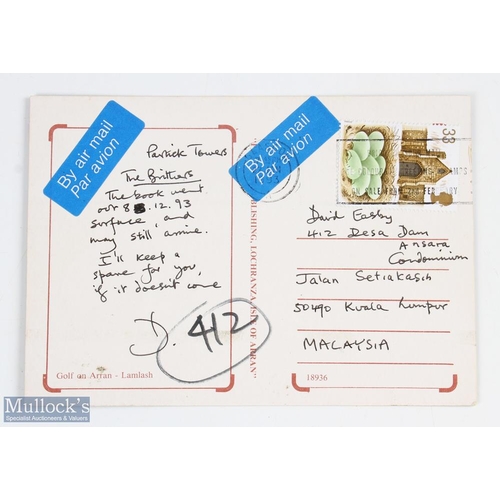 By air mail
Par avion
Partick Towers
The Birthers
The book went
out 8.12.93
surface, and
may still arrive.
I'll keep a
spare for you,
if it doesn't come
D.
412
Golf on Arran - Lamlash
By air mail
Par avion
LISHING, LOCHRANZA, ISLE OF ARRAN"
33
David Easby
412 Desa Dam
Ansara
Condominium
Jalan Setiakasih
50490 Kuala Lumpur
MALAYSIA
18936
Mullock's
Specialist Auctioneers & Valuers